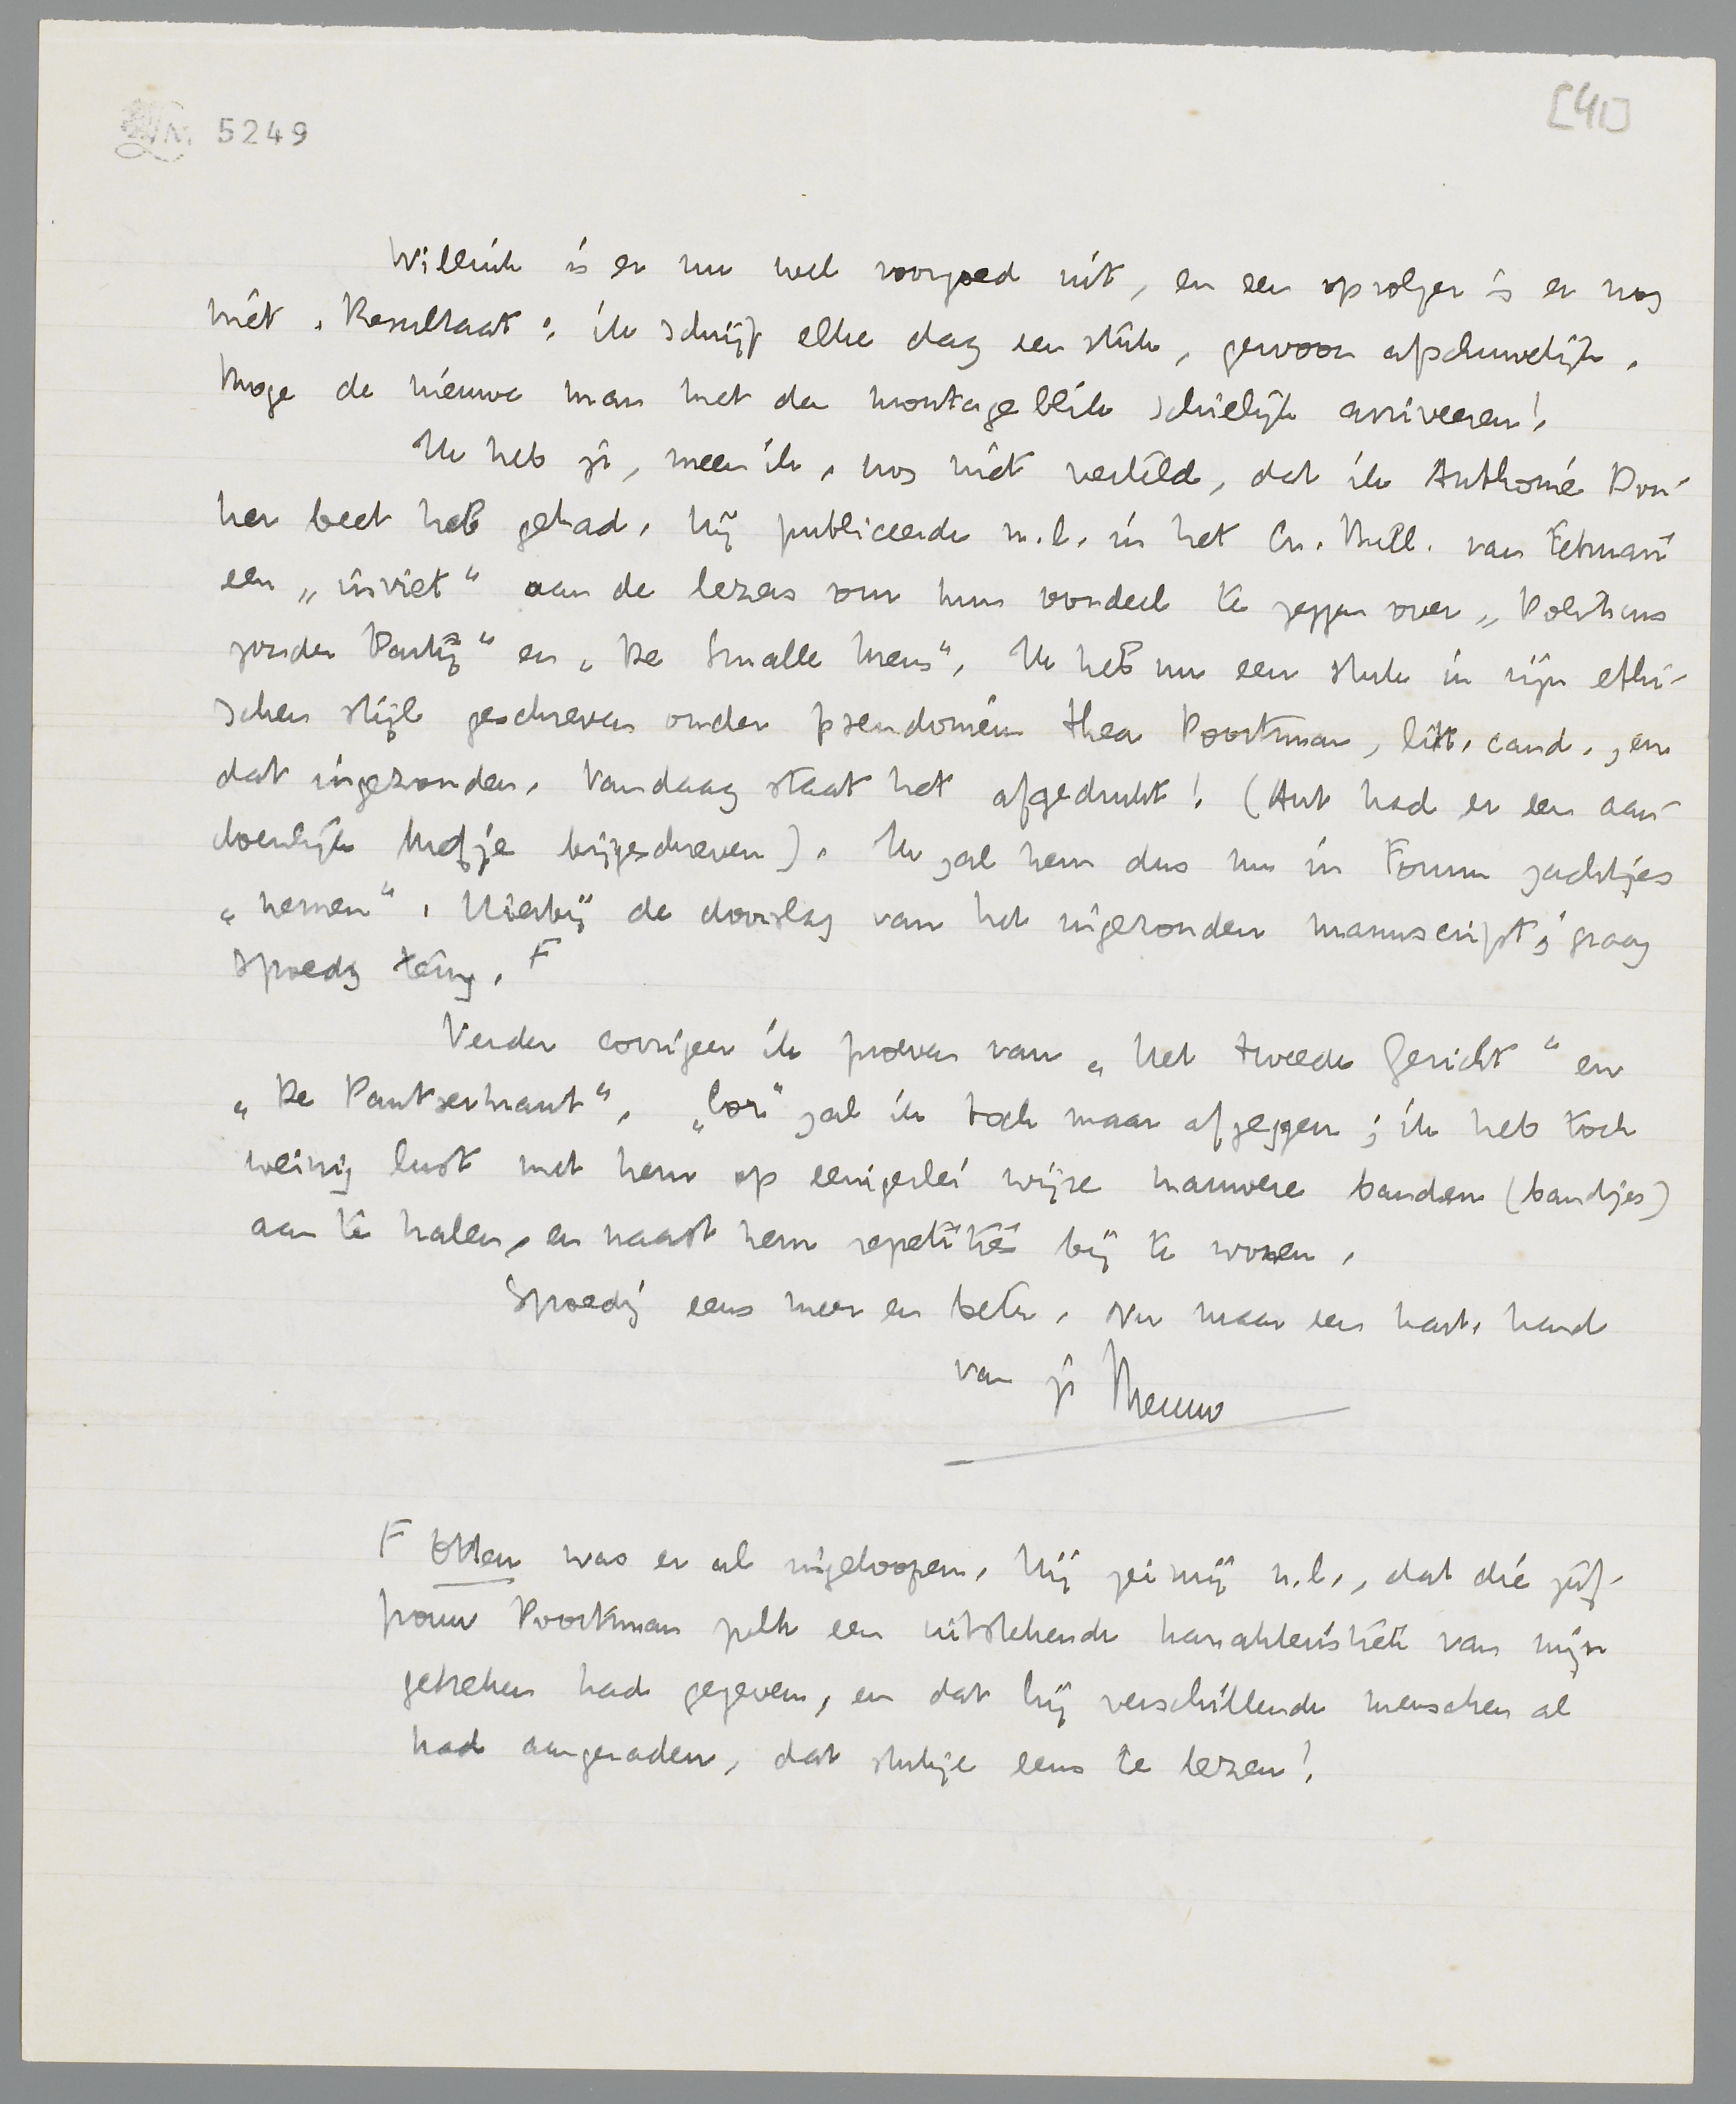 5249
[41]
Willink is er nu wel voorgoed uit, en een opvolger is er nog
niet. Resultaat: ik schrijf elke dag een stuk, gewoon afschuwelijk.
Moge de nieuwe man met den montageblik schielijk arriveeren!
Ik heb je, meen ik, nog niet verteld, dat ik Anthonie Don-
ker beet heb gehad. Hij publiceerde n.l. in het Cr. Bull. van Februari
een „inviet" aan de lezers om hun oordeel te zeggen over „Politicus
zonder Partij" en „De Smalle Mens". Ik heb nu een stuk in zijn ethi-
schen stijl geschreven onder pseudoniem Thea Poortman, litt. cand., en
dat ingezonden. Vandaag staat het afgedrukt! (Ant had er een aan-
doenlijk nootje bijgeschreven). Ik zal hem dus nu in Forum zachtjes
„nemen". Hierbij de doorslag van het ingezonden manuscript; graag
spoedig terug. F
Verder corrigeer ik proeven van „Het tweede Gericht" en
„De Pantserkrant". „Cor" zal ik toch maar afzeggen; ik heb toch
weinig lust met hem op eenigerlei wijze nauwere banden (bandjes)
aan te halen, en naast hem repetities bij te wonen.
Spoedig eens meer en beter. Nu maar een hart. hand
van je Menno
F Otten was er al ingeloopen. Hij zei mij n.l., dat die juf-
frouw Poortman zulk een uitstekende karakteristiek van mijn
geschriften had gegeven, en dat hij verschillende menschen al
had aangeraden, dat stukje eens te lezen!